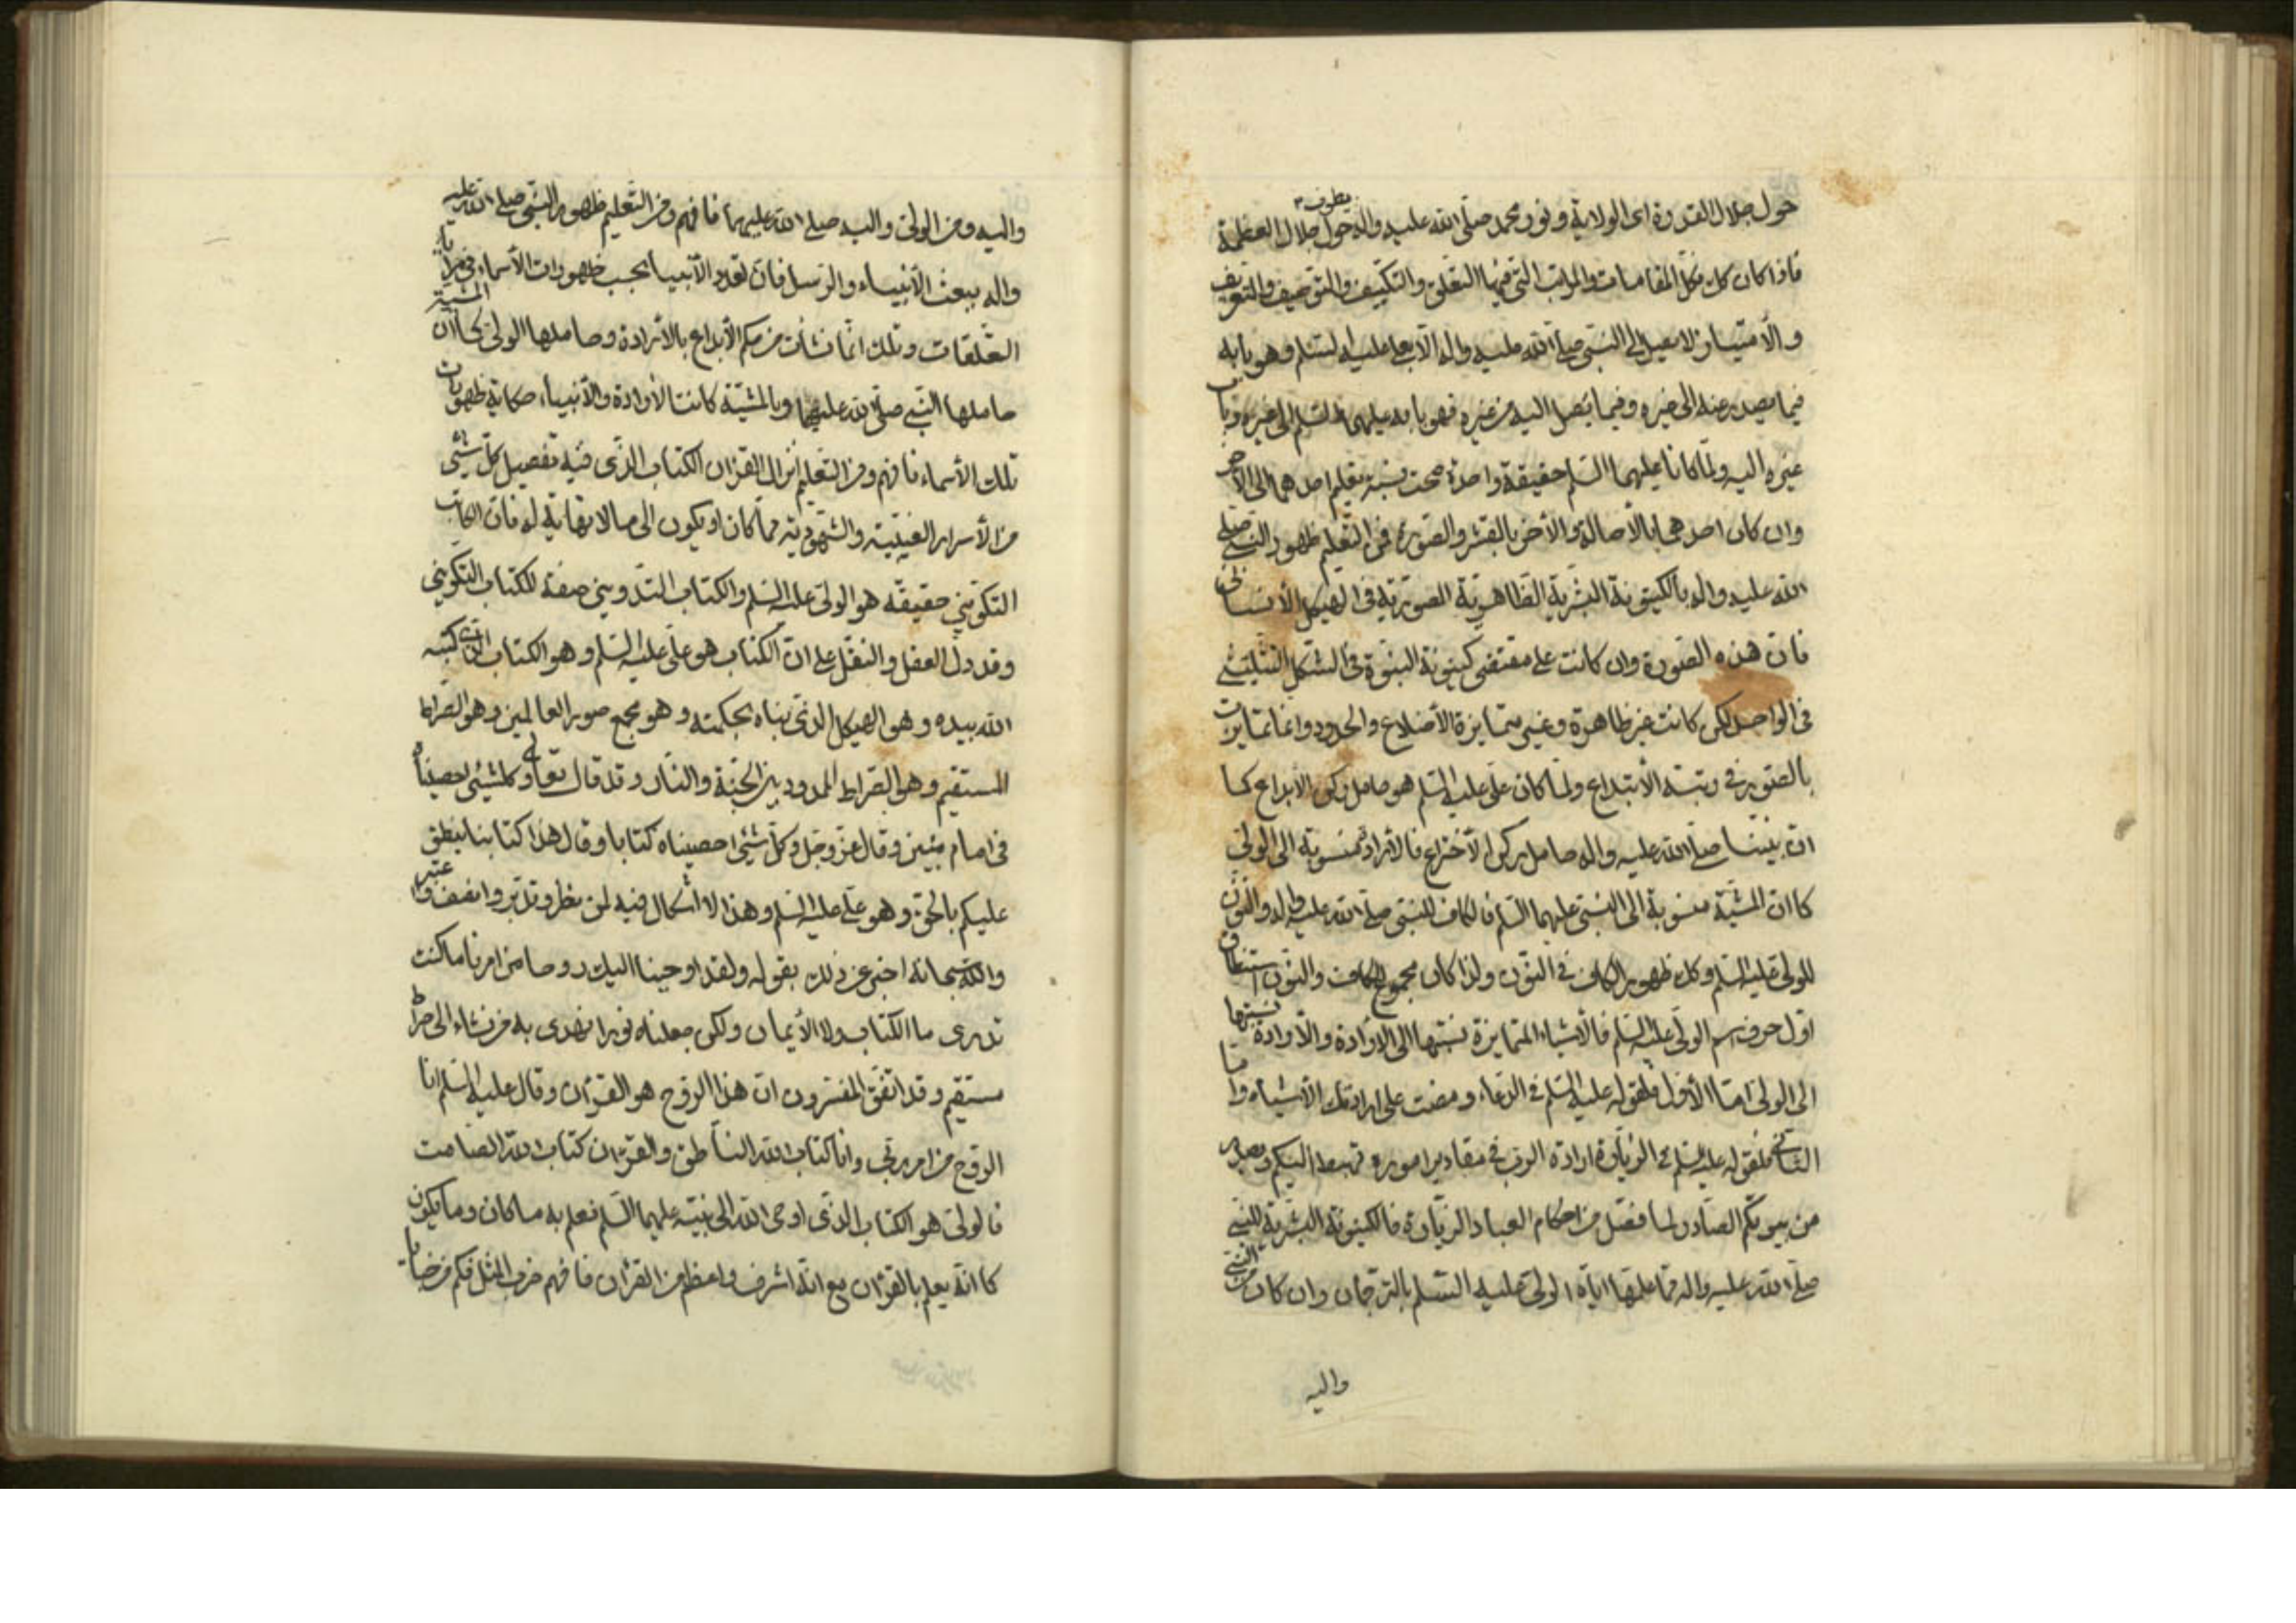 حول جلال القدرة اى الولاية ونور محمد صلى الله عليه واله يطوف حول جلال العظمة
فاذا كان كل تلك المقامات والمراتب التى فيها التعلق والتكييف والتوصيف والتعريف
والأمتياز لا يصل الى النبى صلى الله عليه واله الا بعلى عليه السلم وهو بابه
فيما يصدر عنه الى غيره وفيما يصل اليه من غيره فهو بابه عليهما السلم الى غيره وباب
غيره اليه ولما كانا عليهما السلم حقيقة واحدة صحت نسبة تعليم احدهما الى الاخر
وان كان احدهما بالأصالة والأخر بالقشر والصورة فمن التعليم ظهور النبى صلى
الله عليه واله بالكينونة البشرية الظاهرية الصورية فى الهيكل الأنسانى
فان هذه الصورة وان كانت على مقتضى كينونة النبوة فى الشكل التثليثى
فى الواحد لكن كانت غير ظاهرة وغير متمايزة الأضلاع والحدود وانما تمايزت
بالصورة فى رتبة الأبتداع ولما كان على عليه السلم هو حامل ركن الابداع كما
ان نبينا صلى الله عليه واله حامل ركن الأختراع فالأرادة منسوبة الى الولى
كما ان المشية منسوبة الى النبى عليهما السلم فالكاف للنبى صلى الله عليه واله والنون
للولى عليه السلم وكل ظهور الكاف فى النون ولذا كان مجموع الكاف والنون استنطاق
اول حرف اسم الولى عليه السلم فالأشياء المتمايزة نسبتها الى الأرادة والأرادة نسبتها
الى الولى اما الأول فلقوله عليه السلم فى الدعاء ومضت على ارادتك الأشياء واما
الثانى فلقوله عليه السلم فى الزيارة ارادة الرب فى مقادير اموره تهبط اليكم وتصدر
من بيوتكم الصادر لما فصل من احكام العباد الزيارة فالكينونة البشرية للنبى
صلى الله عليه واله مما علمها اياه الولى عليه السلم بالترجمان وان كان من النبى
واليه
واليه ومن الولى واليه صلى الله عليهما فافهم ومن التعليم ظهور النبى صلى الله عليه
واله ببعث الأنبياء والرسل فان تعدد الأنبياء بحسب ظهورات الأسماء فى مرايا
التعلقات وتلك انما نشأت من حكم الأبداع بالأرادة وحاملها الولى كما ان المشية
حاملها النبى صلى الله عليهما وبالمشية كانت الأرادة والأنبياء حكاية ظهورات
تلك الأسماء فافهم ومن التعليم انزال القران الكتاب الذى فيه تفصيل كل شئ
من الأسرار الغيبية والشهودية مما كان او يكون الى ما لا نهاية له فان الكتاب
التكوينى حقيقة هو الولى عليه السلم والكتاب التدوينى صفة للكتاب التكوينى
وقد دل العقل والنقل على ان الكتاب هو على عليه السلم وهو الكتاب الذى كتبه
الله بيده وهو الهيكل الذى بناه بحكمته وهو مجمع صور العالمين وهو الصراط
المستقيم وهو الصراط الممدود بين الجنة والنار وقد قال تعالى وكل شئ احصيناه
فى امام مبين وقال عز وجل وكل شئ احصيناه كتابا وقال هذا كتابنا ينطق
عليكم بالحق وهو على عليه السلم وهذا لا اشكال فيه لمن نظر وتدبر وانصف واعتبر
والله سبحانه اخبر عن ذلك بقوله ولقد اوحينا اليك روحا من امرنا ما كنت
تدرى ما الكتاب ولا الأيمان ولكن جعلناه نورا نهدى به من نشاء الى صراط
مستقيم وقد اتفق المفسرون ان هذا الروح هو القرآن وقال عليه السلم انا
الروح من امر ربى وانا كتاب الله الناطق والقرآن كتاب الله الصامت
فالولى هو الكتاب الذى اوحى الله الى نبيه عليهما السلم فعلم به ما كان وما يكون
كما انه يعلم بالقرآن مع انه اشرف واعظم من القرآن فافهم ضرب المثل فكم من خبايا